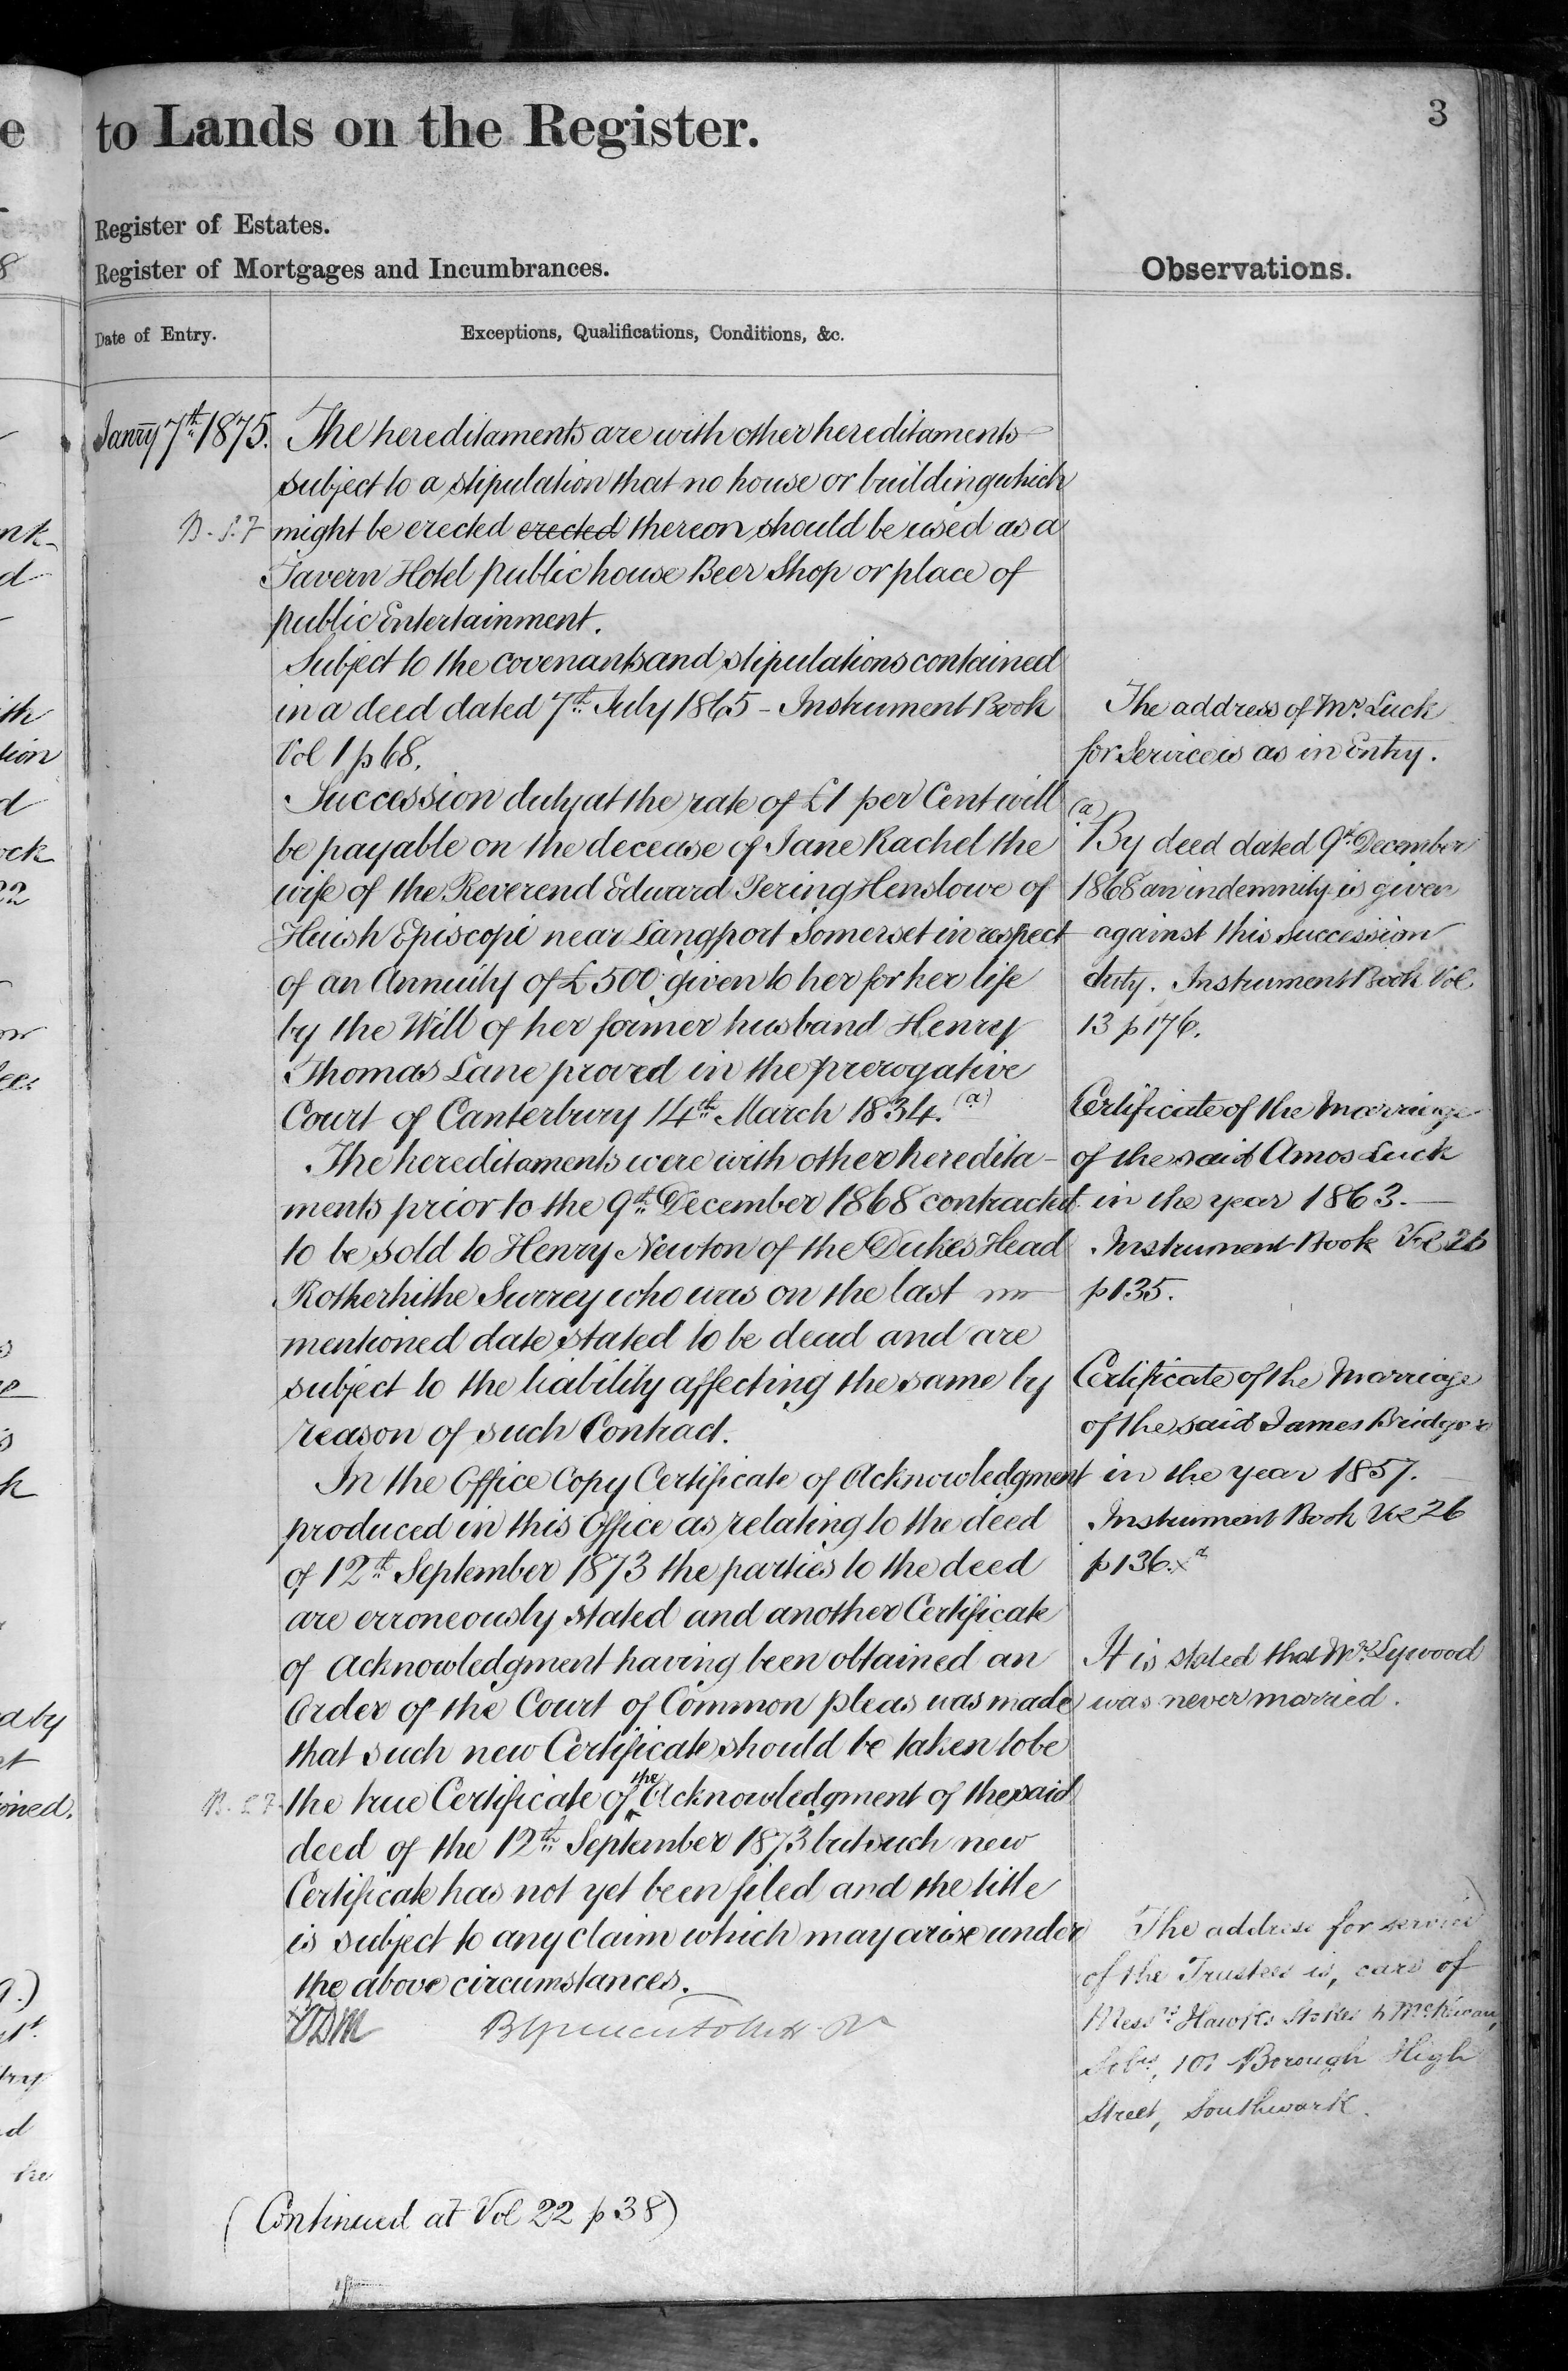 to Lands on the Register.
3
Register of Estates.
Register of Mortgages and Incumbrances.
Observations.
Date of Entry.
Exceptions, Qualifications, Conditions, &c.
Janry 7th 1875.
The hereditaments are with other hereditaments
subject to a stipulation that no house or building which
might be erected erected thereon should be used as a
Tavern Hotel public house Beer Shop or place of
public Entertainment.
Subject to the covenants and stipulations contained
in a deed dated 7th July 1865 - Instrument Book
Vol 1 p 68.
Succession duty at the rate of £1 per Cent will
be payable on the decease of Jane Rachel the
wife of the Reverend Edward Pering Henslowe of
Huish Episcopi near Langport Somerset in respect
of an Annuity of £500 given to her for her life
by the Will of her former husband Henry
Thomas Lane proved in the prerogative
Court of Canterbury 14th March 1834. (a)
The hereditaments were with other heredita-
ments prior to the 9th December 1868 contracted
to be sold to Henry Newton of the Dukes Head
Rotherhithe Surrey who was on the last
mentioned date stated to be dead and are
subject to the liability affecting the same by
reason of such Contract.
In the Office Copy Certificate of Acknowledgment
produced in this Office as relating to the deed
of 12th September 1873 the parties to the deed
are erroneously stated and another Certificate
of Acknowledgment having been obtained an
Order of the Court of Common pleas was made
that such new Certificate should be taken to be
the true Certificate of the Acknowledgment of the said
deed of the 12th September 1873 but such new
Certificate has not yet been filed and the title
is subject to any claim which may arise under
the above circumstances.
(Continued at Vol 22 p 38)
The address of Mr. Luck
for Service is as in Entry.
(a)
By deed dated 9th December
1868 an indemnity is given
against this succession
duty. Instrument Book Vol
13 p 176.
Certificate of the Marriage
of the said Amos Luck
in the year 1863.
Instrument Book Vol 26
p 135.
Certificate of the Marriage
of the said James Bridger
in the year 1857.
Instrument Book Vol 26
p 136.
It is stated that Mr. Lywood
was never married.
The address for service
of the Trustees is, care of
Messrs Hawks Stokes & McKewan,
Solrs, 101 Borough High
Street, Southwark.